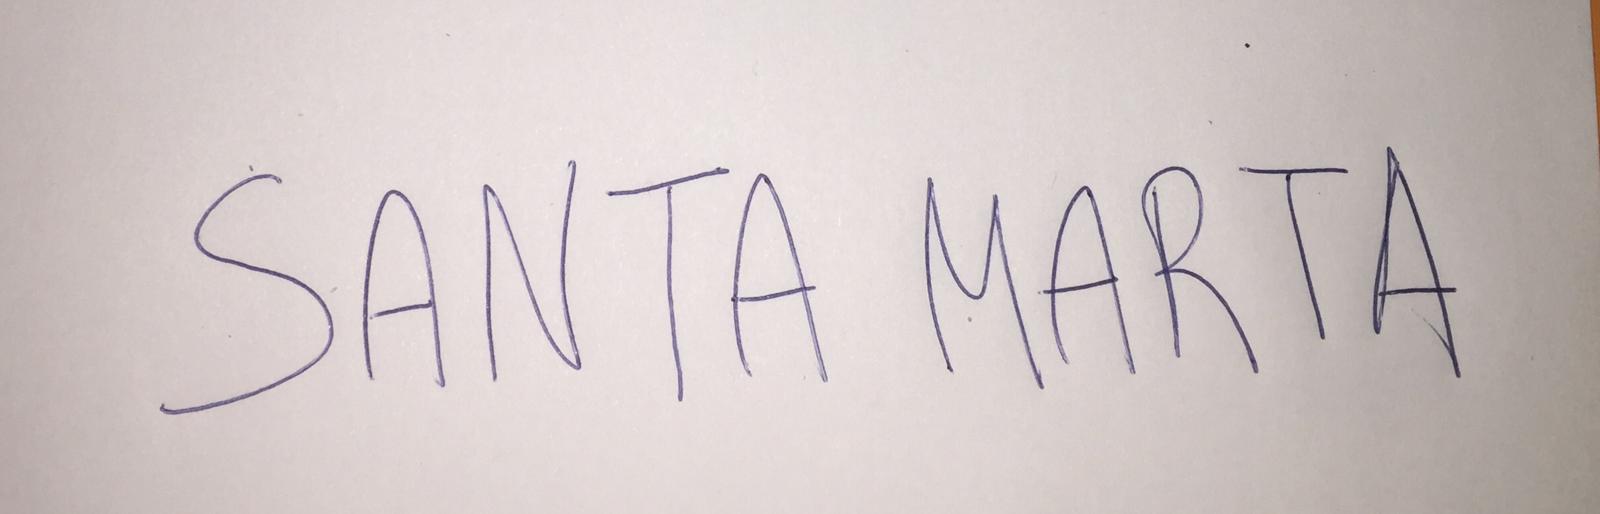 SANTA MARTA